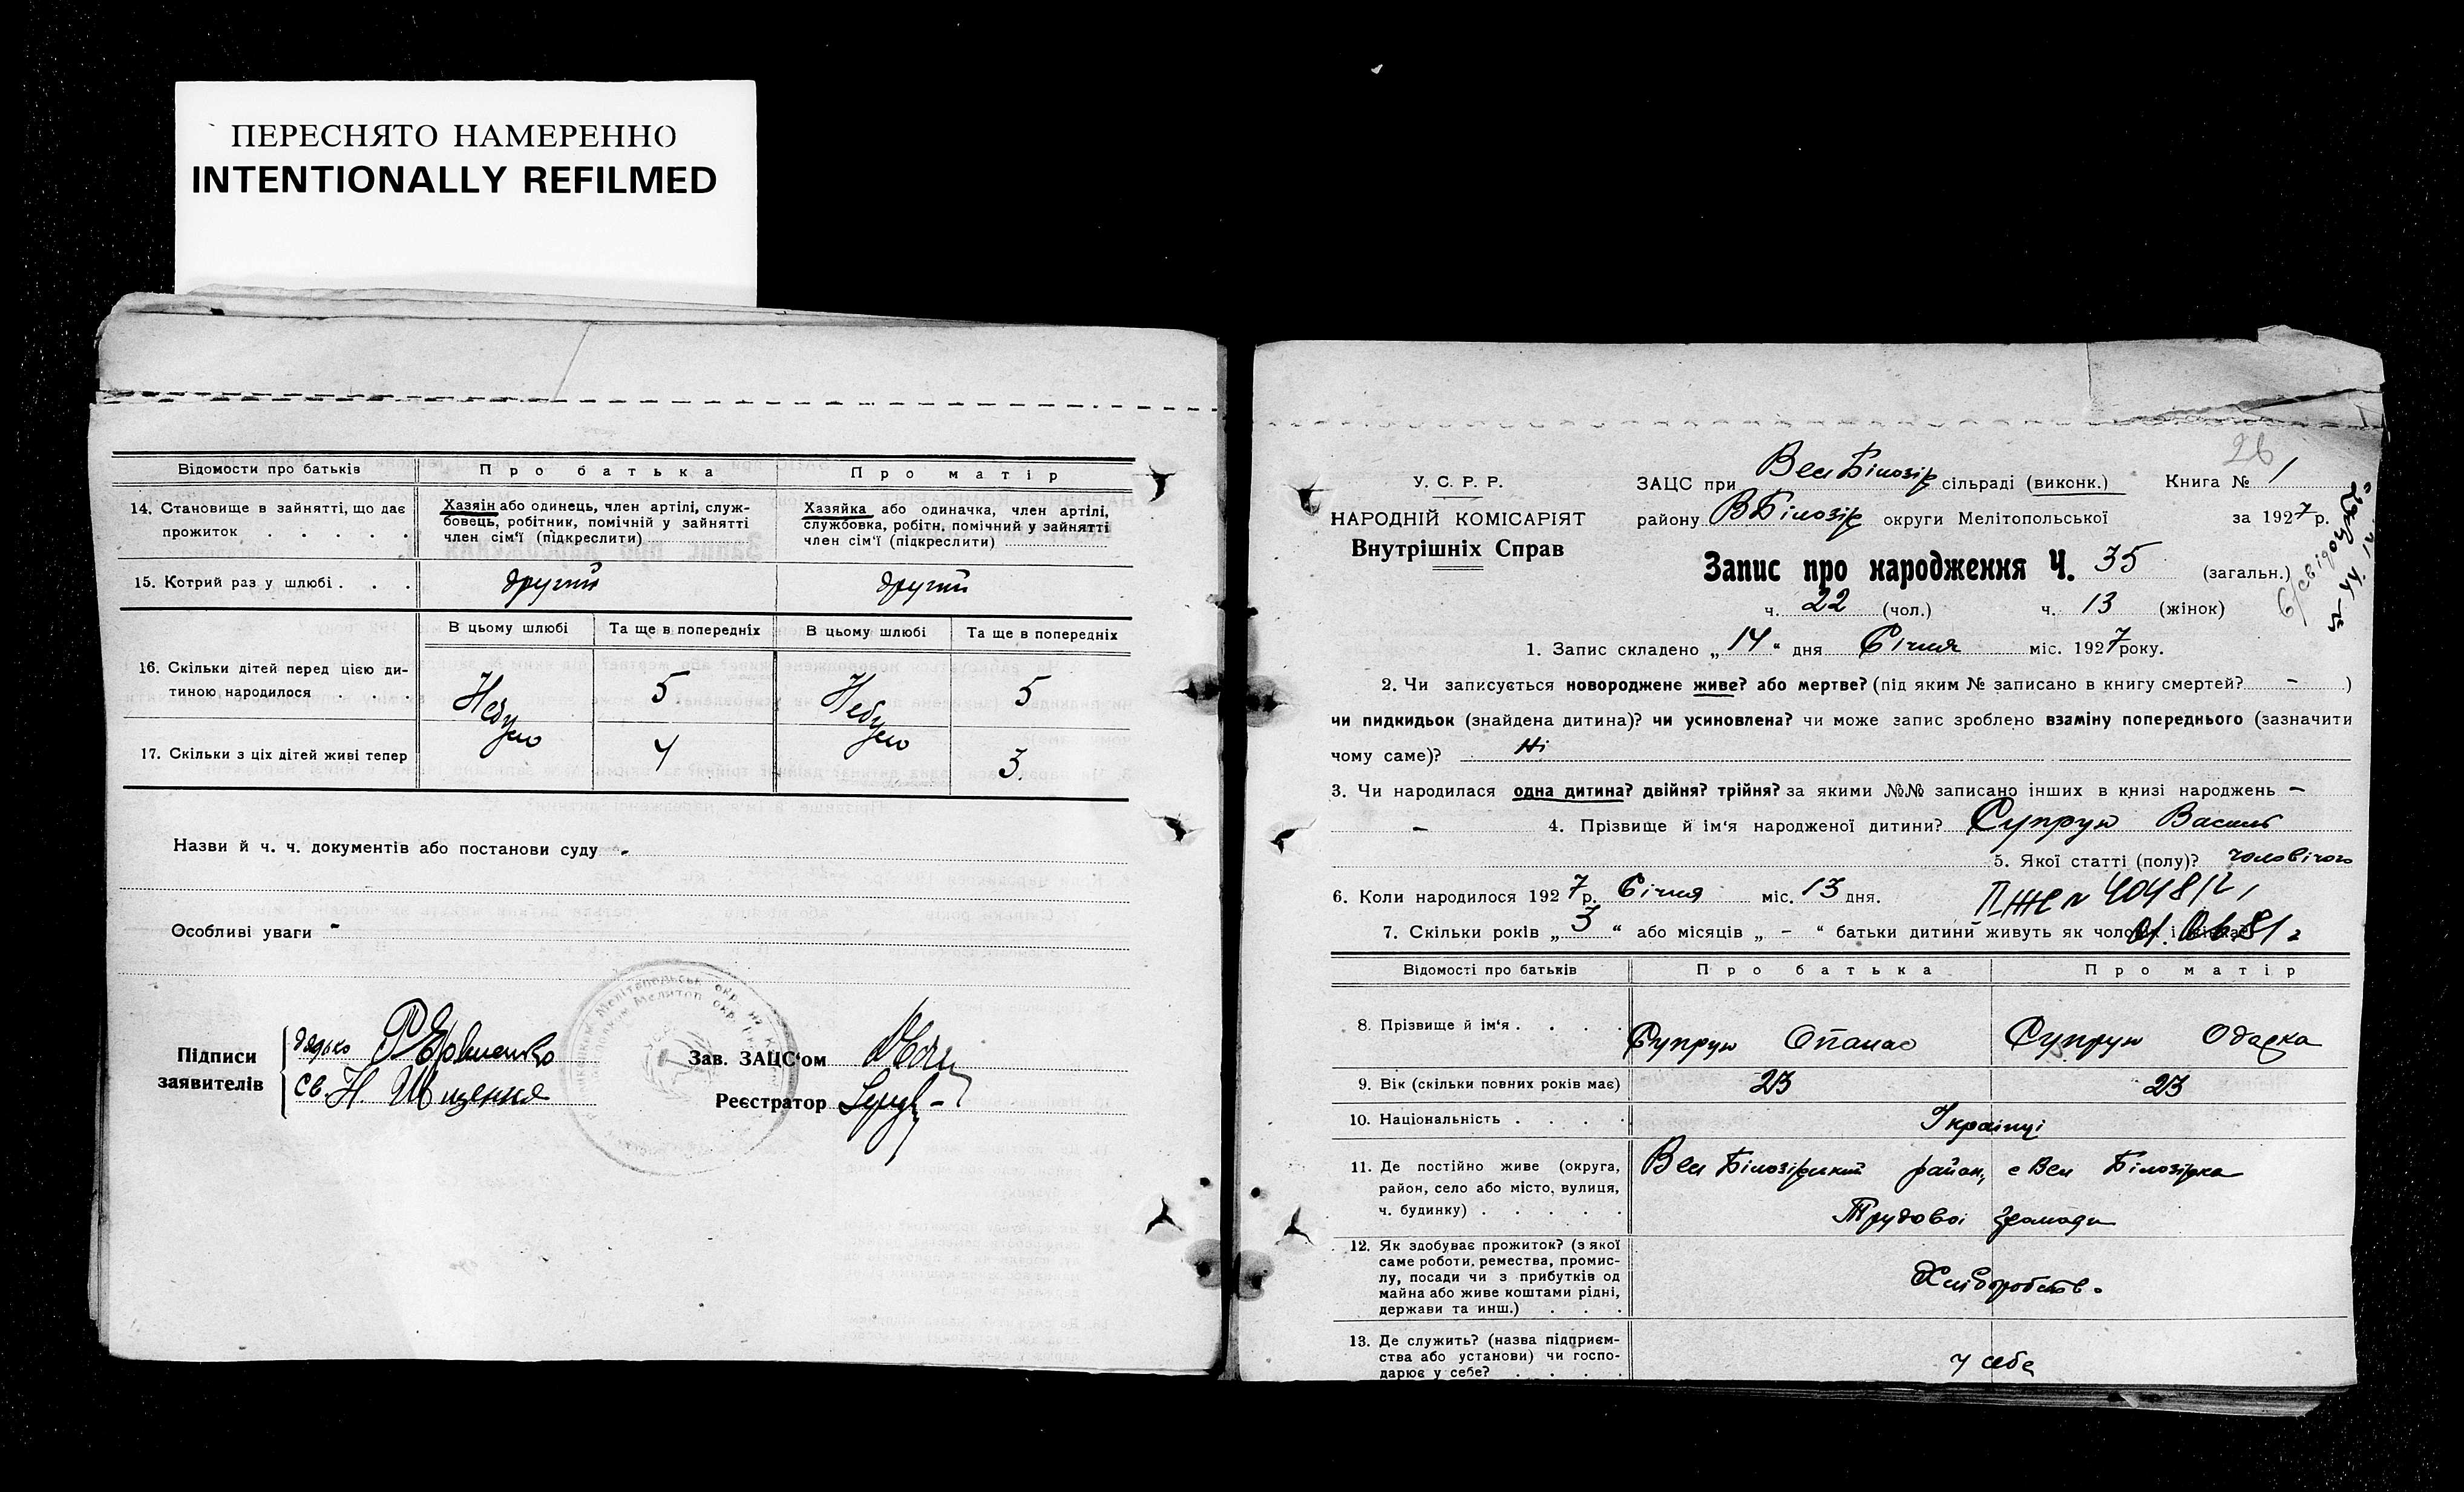 ПЕРЕСНЯТО НАМЕРЕННО
INTENTIONALLY REFILMED
Відомости про батьків
Про батька
Про матір
14. Становище в зайнятті, що дає прожиток . . . . .
Хазяін або одинець, член артілі, служ-
бовець, робітник, помічній у зайнятті
член сім'ї (підкреслити)
Хазяйка або одиначка, член артілі,
службовка, робітн, помічний у зайнятті
член сім'ї (підкреслити)
15. Котрий раз у шлюбі . . .
другий
другий
В цьому шлюбі
Та ще в попередніх
В цьому шлюбі
Та ще в попередніх
16. Скільки дітей перед цією ди-
тиною народилося . . .
Небуло
5
Небуло
5
17. Скільки з ціх дітей живі тепер
4
3.
Назви й ч. ч. документів або постанови суду -
Особливі уваги -
Підписи
заявителів
дядько
св. Н Шищенья
Зав. ЗАЦС'ом
Реєстратор
26
У. С. Р. Р.
НАРОДНІЙ КОМІСАРІЯТ
Внутрішніх Справ
ЗАЦС при Вел Білозір сільраді (виконк.) Книга № 1
району ВБілозір округи Мелітопольської за 1927 р.
Запис про народження Ч. 35 (загальн.)
ч. 22 (чол.) ч. 13 (жінок)
1. Запис складено „14“ дня Січня міс. 1927 року.
2. Чи записується новороджене живе? або мертве? (під яким № записано в книгу смертей? - )
чи пидкидьок (знайдена дитина)? чи усиновлена? чи може запис зроблено взаміну попереднього (зазначити
чому саме)? Ні
3. Чи народилася одна дитина? двійня? трійня? за якими №№ записано інших в книзі народжень -
- 4. Прізвище й ім'я народженої дитини? Супрун Василь
5. Якої статті (полу)? чоловічого
6. Коли народилося 1927 р. Січня міс. 13 дня.
7. Скільки років „3“ або місяців „ - “ батьки дитини живуть як чоловік і
Відомості про батьків
Про батька
Про матір
8. Прізвище й ім'я . . . .
Супрун Опанас
Супрун Одарка
9. Вік (скільки повних років має)
23
23
10. Національність . . . .
Українці
11. Де постійно живе (округа,
район, село або місто, вулиця,
ч. будинку) . . . . .
Вел Білозірський район, с Вел Білозірка
Трудової громади
12. Як здобуває прожиток? (з якої
саме роботи, ремества, промис-
лу, посади чи з прибутків од
майна або живе коштами рідні,
держави та инш.) . . .
Хліборобств.
13. Де служить? (назва підприєм-
ства або установи) чи госпо-
дарює у себе? . . . .
у себе